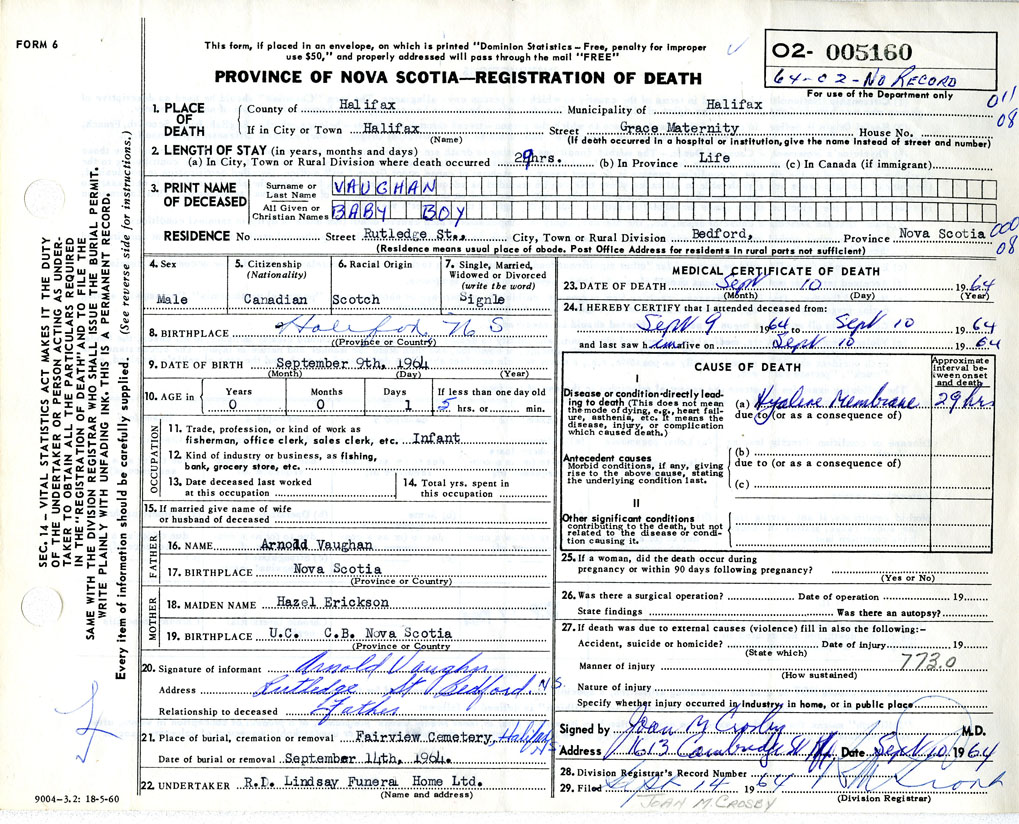 FORM 6
This form, if placed in an envelope, on which is printed "Dominion Statistics – Free, penalty for improper
use $50," and properly addressed will pass through the mail "FREE"
O2- 005160
64-02-No RECORD
For use of the Department only
PROVINCE OF NOVA SCOTIA—REGISTRATION OF DEATH
011
08
1. PLACE OF DEATH
County of Halifax Municipality of Halifax
If in City or Town Halifax Street Grace Maternity House No.
(Name) (If death occurred in a hospital or institution, give the name instead of street and number)
2. LENGTH OF STAY (in years, months and days)
(a) In City, Town or Rural Division where death occurred 29hrs. (b) In Province Life (c) In Canada (if immigrant)
3. PRINT NAME OF DECEASED
Surname or Last Name VAUGHAN
All Given or Christian Names BABY BOY
000
08
RESIDENCE No Street Rutledge St., City, Town or Rural Division Bedford, Province Nova Scotia
(Residence means usual place of abode. Post Office Address for residents in rural parts not sufficient)
4. Sex Male
5. Citizenship (Nationality) Canadian
6. Racial Origin Scotch
7. Single, Married, Widowed or Divorced (write the word) Signle
8. BIRTHPLACE Halifax, N S
(Province or Country)
9. DATE OF BIRTH September 9th, 1964
(Month) (Day) (Year)
10. AGE in Years 0 Months 0 Days 1 If less than one day old 5 hrs. or min.
OCCUPATION
11. Trade, profession, or kind of work as
fisherman, office clerk, sales clerk, etc. Infant
12. Kind of industry or business, as fishing,
bank, grocery store, etc.
13. Date deceased last worked
at this occupation
14. Total yrs. spent in
this occupation
15. If married give name of wife
or husband of deceased
FATHER
16. NAME Arnold Vaughan
17. BIRTHPLACE Nova Scotia
(Province or Country)
MOTHER
18. MAIDEN NAME Hazel Erickson
19. BIRTHPLACE U.C. C.B. Nova Scotia
(Province or Country
20. Signature of informant Arnold Vaughn
Address Rutledge St Bedford N S.
Relationship to deceased Father
21. Place of burial, cremation or removal Fairview Cemetery, Halifax NS
Date of burial or removal September 14th, 1964.
22. UNDERTAKER R.D. Lindsay Funera Home Ltd.
(Name and address)
9004-3.2: 18-5-60
MEDICAL CERTIFICATE OF DEATH
23. DATE OF DEATH Sept 10 1964
(Month) (Day) (Year)
24. I HEREBY CERTIFY that I attended deceased from:
Sept 9 1964 to Sept 10 1964
and last saw him alive on Sept 10 1964
CAUSE OF DEATH
Approximate
interval be-
tween onset
and death
I
Disease or condition directly lead-
ing to death (This does not mean
the mode of dying, e.g., heart fail-
ure, asthenia, etc. It means the
disease, injury, or complication
which caused death.)
(a) Hyaline Membrane 29 hrs
due to (or as a consequence of)
Antecedent causes
Morbid conditions, if any, giving
rise to the above cause, stating
the underlying condition last.
(b)
due to (or as a consequence of)
(c)
II
Other significant conditions
contributing to the death, but not
related to the disease or condi-
tion causing it.
25. If a woman, did the death occur during
pregnancy or within 90 days following pregnancy?
(Yes or No)
26. Was there a surgical operation? Date of operation 19
State findings Was there an autopsy?
27. If death was due to external causes (violence) fill in also the following:–
Accident, suicide or homicide? Date of injury 19
(State which)
773.0
Manner of injury
(How sustained)
Nature of injury
Specify whether injury occurred in industry in home, or in public place
Signed by Joan M Crosby M.D.
Address 1613 Cambridge St Hfx Date Sept 10 1964
28. Division Registrar's Record Number
29. Filed Sept 14 1964
(Division Registrar)
JOAN M. CROSBY
SEC. 14 – VITAL STATISTICS ACT MAKES IT THE DUTY
OF THE UNDERTAKER OR PERSON ACTING AS UNDER-
TAKER TO OBTAIN ALL THE PARTICULARS REQUIRED
IN THE "REGISTRATION OF DEATH" AND TO FILE THE
SAME WITH THE DIVISION REGISTRAR WHO SHALL ISSUE THE BURIAL PERMIT.
WRITE PLAINLY WITH UNFADING INK. THIS IS A PERMANENT RECORD.
Every item of information should be carefully supplied. (See reverse side for instructions.)